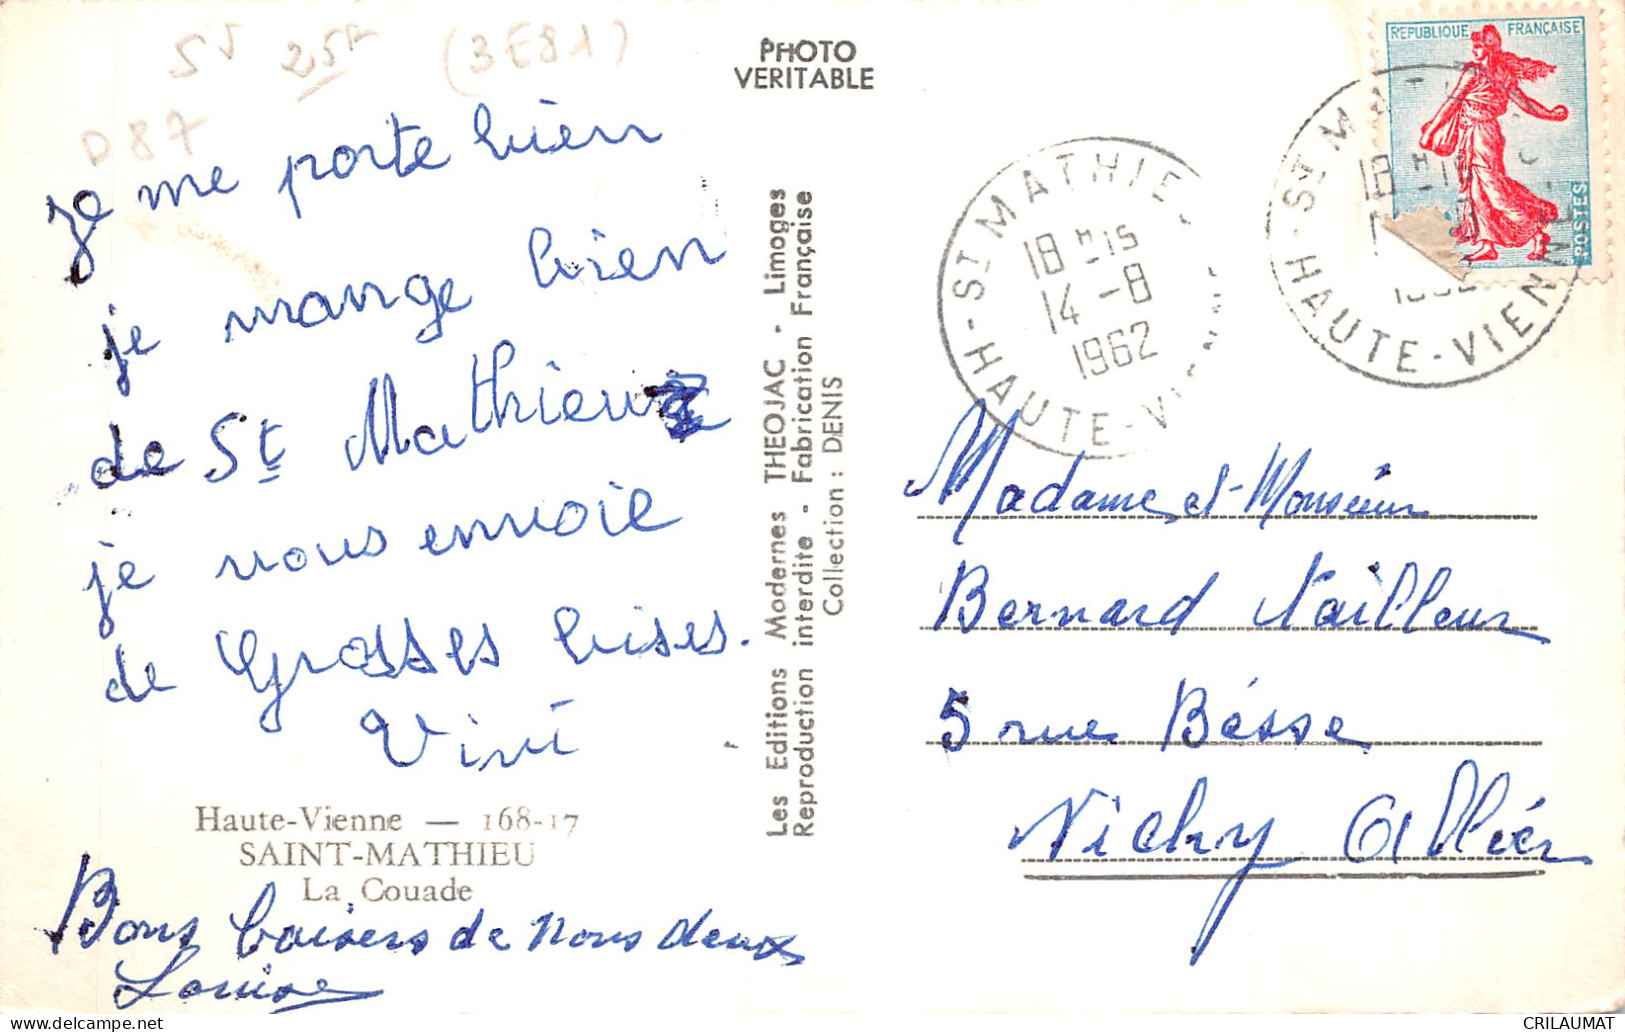 55 25F (3E81)
D87
PHOTO
VERITABLE
Je me porte bien
je mange bien
de St Mathieu
je vous envoie
de Grosses bises.
Vivi
Haute-Vienne — 168-17
SAINT-MATHIEU
La Couade
Bons baisers de nous deux
Louise
Les Editions Modernes THEOJAC - Limoges
Reproduction interdite - Fabrication Française
Collection : DENIS
REPUBLIQUE FRANÇAISE
POSTES
ST MATHIE
18 H 15
14 -8
1962
H-HAUTE-VIENNE
ST MAT
18 H 15
1962
H-HAUTE-VIENNE
Madame et Monsieur
Bernard Tailleur
5 rue Bésse
Vichy Allier
CRILAUMAT